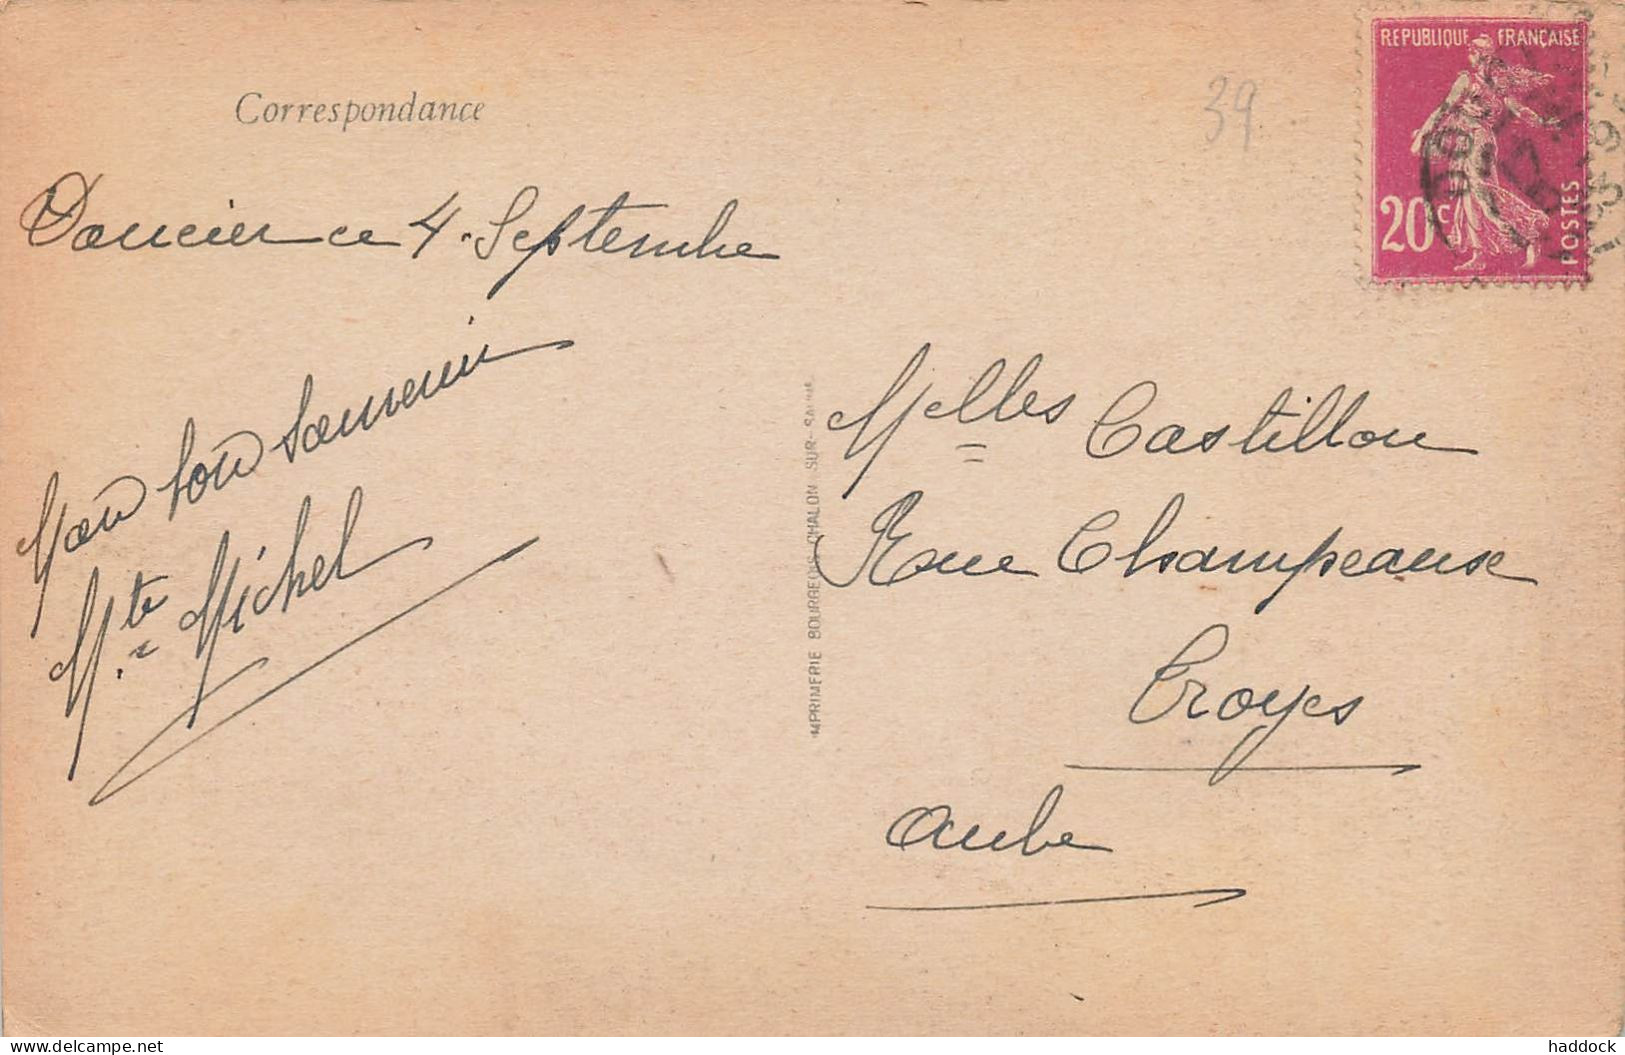 Correspondance
39
REPUBLIQUE FRANÇAISE
20c
POSTES
Doucier ce 4 Septembre
Mon bon souvenir
Mte Michel
IMPRIMERIE BOURGEOIS CHALON-SUR-SAONE
Melles Castillon
Rue Champeaux
Troyes
Aube
delcampe.net
haddock